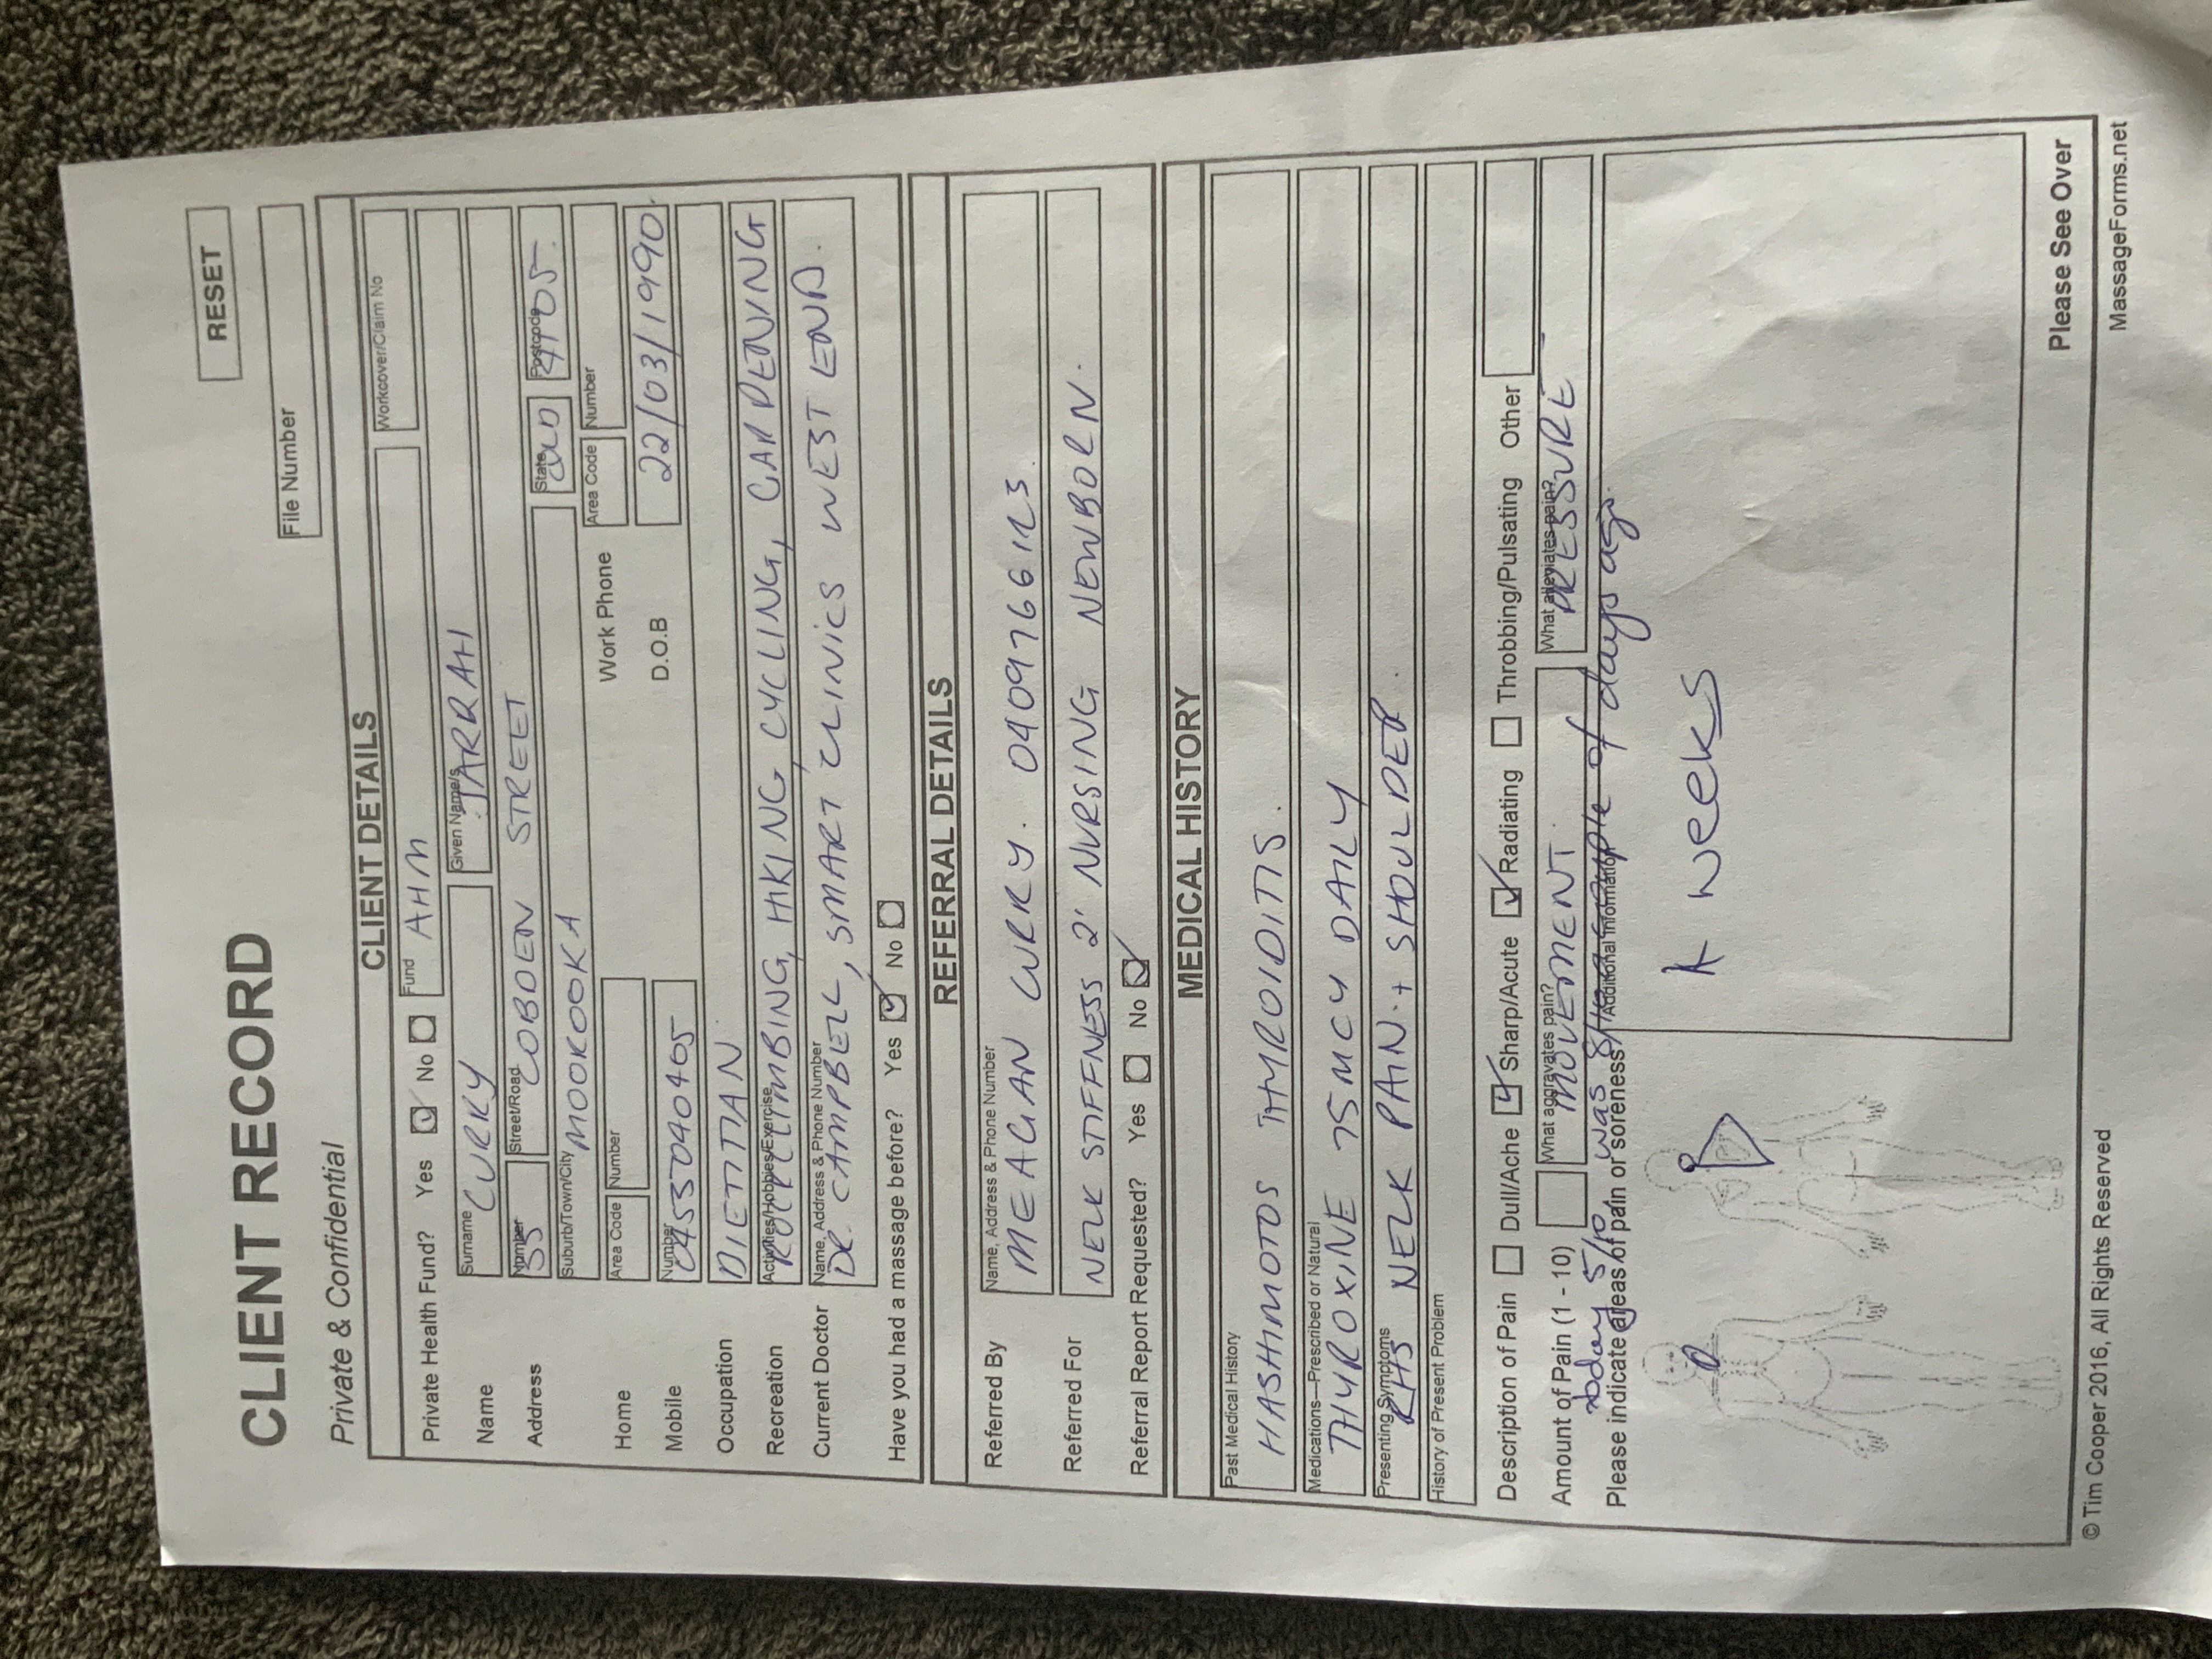 RESET
CLIENT RECORD
File Number
Private & Confidential
CLIENT DETAILS
Private Health Fund? Yes No Fund AHM Workcover/Claim No
Name Surname CURRY Given Name/s JARRAH
Address Number 35 Street/Road COBDEN STREET
Suburb/Town/City MOOROOKA State QLD Postcode 4105
Home Area Code Number Work Phone Area Code Number
Mobile Number 0453040405 D.O.B 22/03/1990
Occupation DIETITIAN
Recreation Activities/Hobbies/Exercise ROCK CLIMBING, HKING, CYCLING, GARDENING
Current Doctor Name, Address & Phone Number DR CAMPBELL, SMART CLINICS WEST END.
Have you had a massage before? Yes No
REFERRAL DETAILS
Referred By Name, Address & Phone Number MEAGAN CURRY. 0409766123.
Referred For NECK STIFFNESS 2' NURSING NEWBORN.
Referral Report Requested? Yes No
MEDICAL HISTORY
Past Medical History
HASHIMOTOS THYROIDITIS.
Medications—Prescribed or Natural
THYROXINE 75 MCG DAILY
Presenting Symptoms
RHS NECK PAIN. + SHOULDER.
History of Present Problem
Description of Pain Dull/Ache Sharp/Acute Radiating Throbbing/Pulsating Other
Amount of Pain (1 - 10) What aggravates pain? MOVEMENT. What alleviates pain? PRESSURE
today 5/10 was 8/10 a couple of days ago.
Please indicate areas of pain or soreness Additional Information
weeks
Please See Over
© Tim Cooper 2016, All Rights Reserved
MassageForms.net